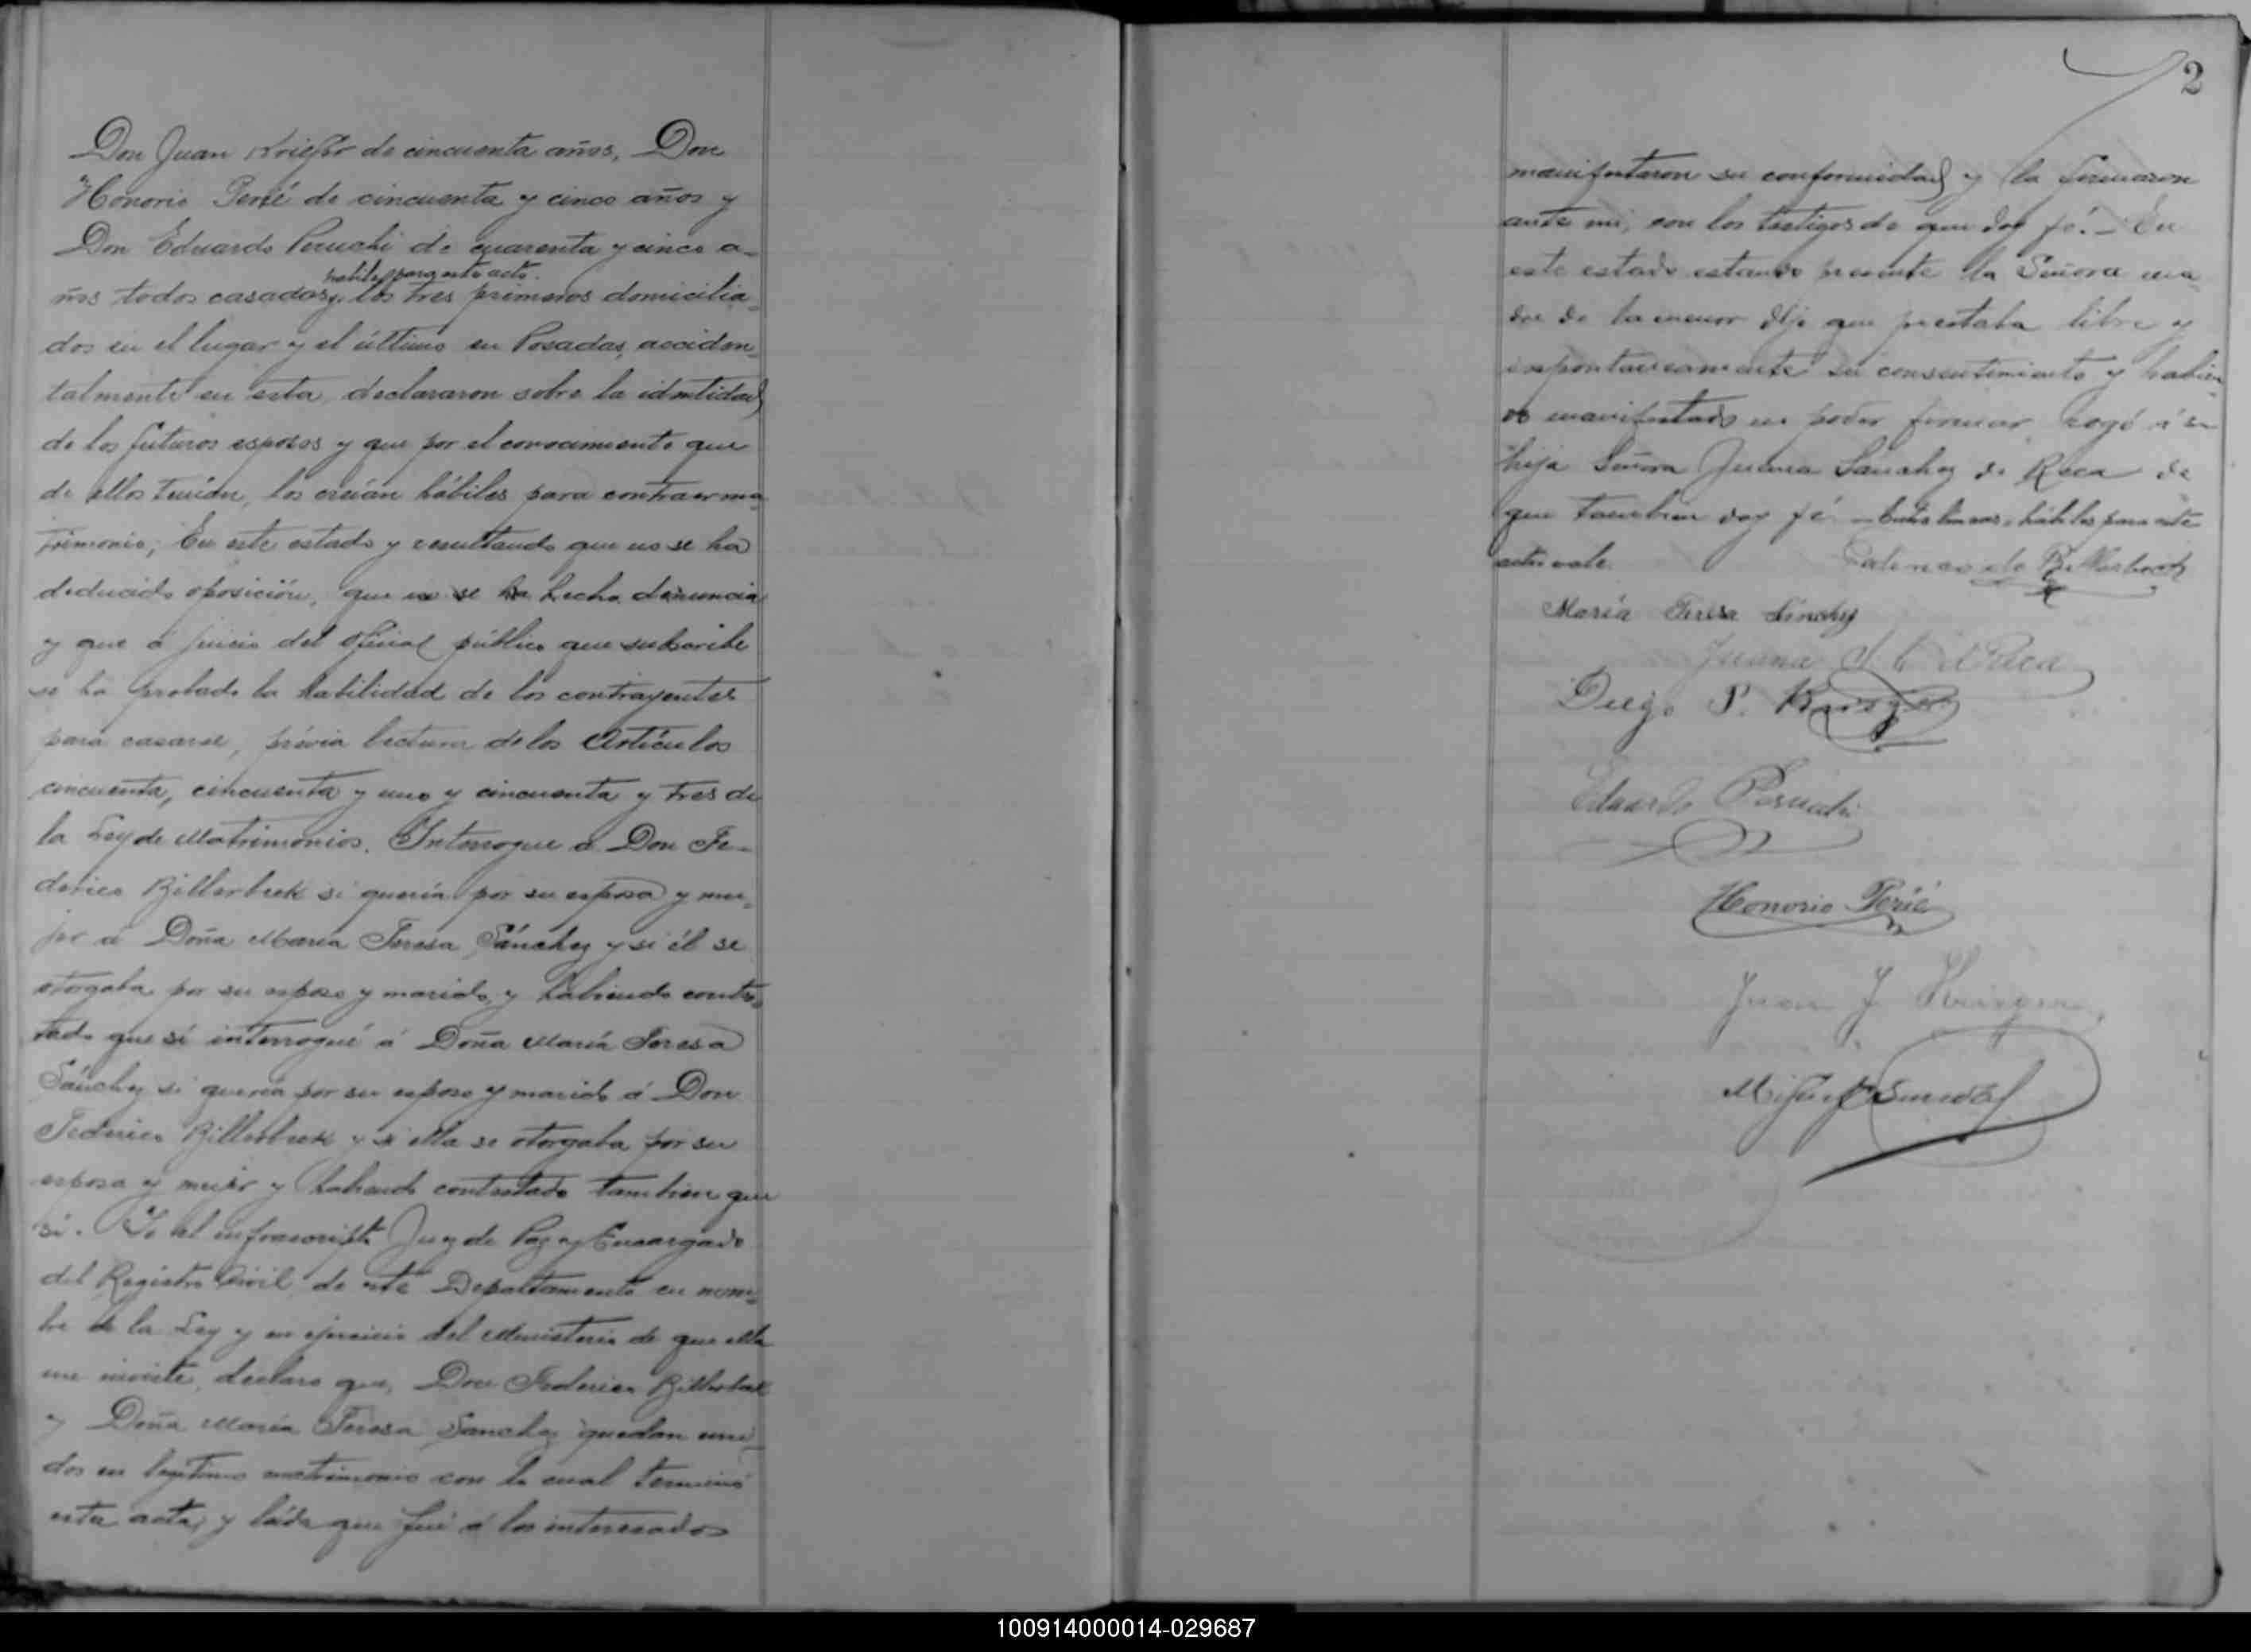 Don Juan Krieger de cincuenta años, Don
Honorio Perié de cincuenta y cinco años y
Don Eduardo Peruchi de cuarenta y cinco a-
habiles para este acto.
ños todos casados y los tres primeros domicilia-
dos en el lugar y el último en Posadas, acciden-
talmente en esta, declararon sobre la identidad
de los futuros esposos y que por el conocimiento que
de ellos tenían, los creían hábiles para contraer ma-
trimonio; En este estado y resultando que no se ha
deducido oposición, que no se ha hecho denuncia
y que á juicio del oficial público que subscribe
se ha probado la habilidad de los contrayentes
para casarse, prévia lectura de los Artículos
cincuenta, cincuenta y uno y cincuenta y tres de
la Ley de Matrimonios. Interrogue á Don Fe-
derico Billerbeck si quería por su esposa y mu-
jer á Doña María Teresa Sánchez y si él se
otorgaba por su esposo y marido, y habiendo contes-
tado que sí interrogué á Doña María Teresa
Sánchez si quería por su esposo y marido á Don
Federico Billerbeck y si ella se otorgaba por su
esposa y mujer y habiendo contestado tambien que
sí. Yo el infrascripto Juez de Paz y Encargado
del Registro Civil de este Departamento en nom-
bre de la Ley y en ejercicio del Ministerio de que ella
me inviste, declaro que, Don Federico Billerbeck
y Doña María Teresa Sanchez quedan uni-
dos en legítimo matrimonio con lo cual terminó
esta acta, y leída que fué á los interesados
2
manifestaron su conformidad y la firmaron
ante mí, con los testigos de que doy fé. - En
este estado estando presente la Señora ma-
dre de la menor dijo que prestaba libre y
espontaneamente su consentimiento y habien-
do manifestado no poder firmar, rogó á su
hija Señora Juana Sanchez de Roca de
que tambien doy fé - Entre lineas, hábiles para este
acto vale.
de Billerbeck
María Teresa Sánchez
Juana S. de Roca
Diego P. Krieger
Eduardo Peruchi
Honorio Perié
Juan J Krieger
100914000014-029687